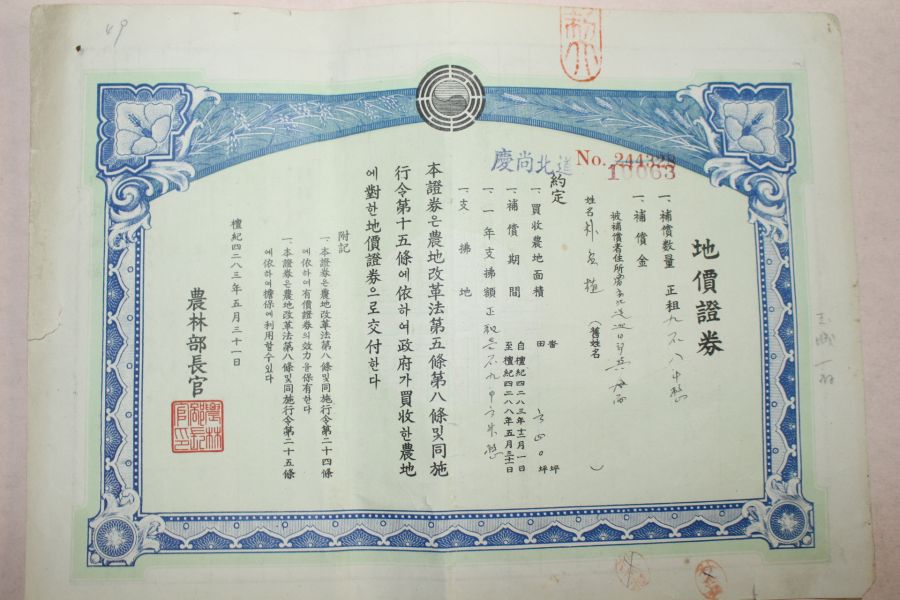 地價證券
慶尚北道
No. 244328
10063
一、補償數量 正租
一、補償金
被補償者住所
姓名 朴 植 (舊姓名 )
約定
一、買收農地面積 畓 坪
田 坪
一、補償期間 自檀紀四二八三年十二月一日
至檀紀四二八八年五月三十一日
一、一年支拂額 正租
一、支拂地
本證券은農地改革法第五條第八條및同施
行令第十五條에依하여政府가買收한農地
에對한地價證券으로交付한다
附記
一、本證券은農地改革法第八條및同施行令第二十四條
에依하여有價證券의效力을保有한다
一、本證券은農地改革法第八條및同施行令第二十五條
에依하여擔保에利用할수있다
檀紀四二八三年五月三十一日
農林部長官
農林部長官印
49